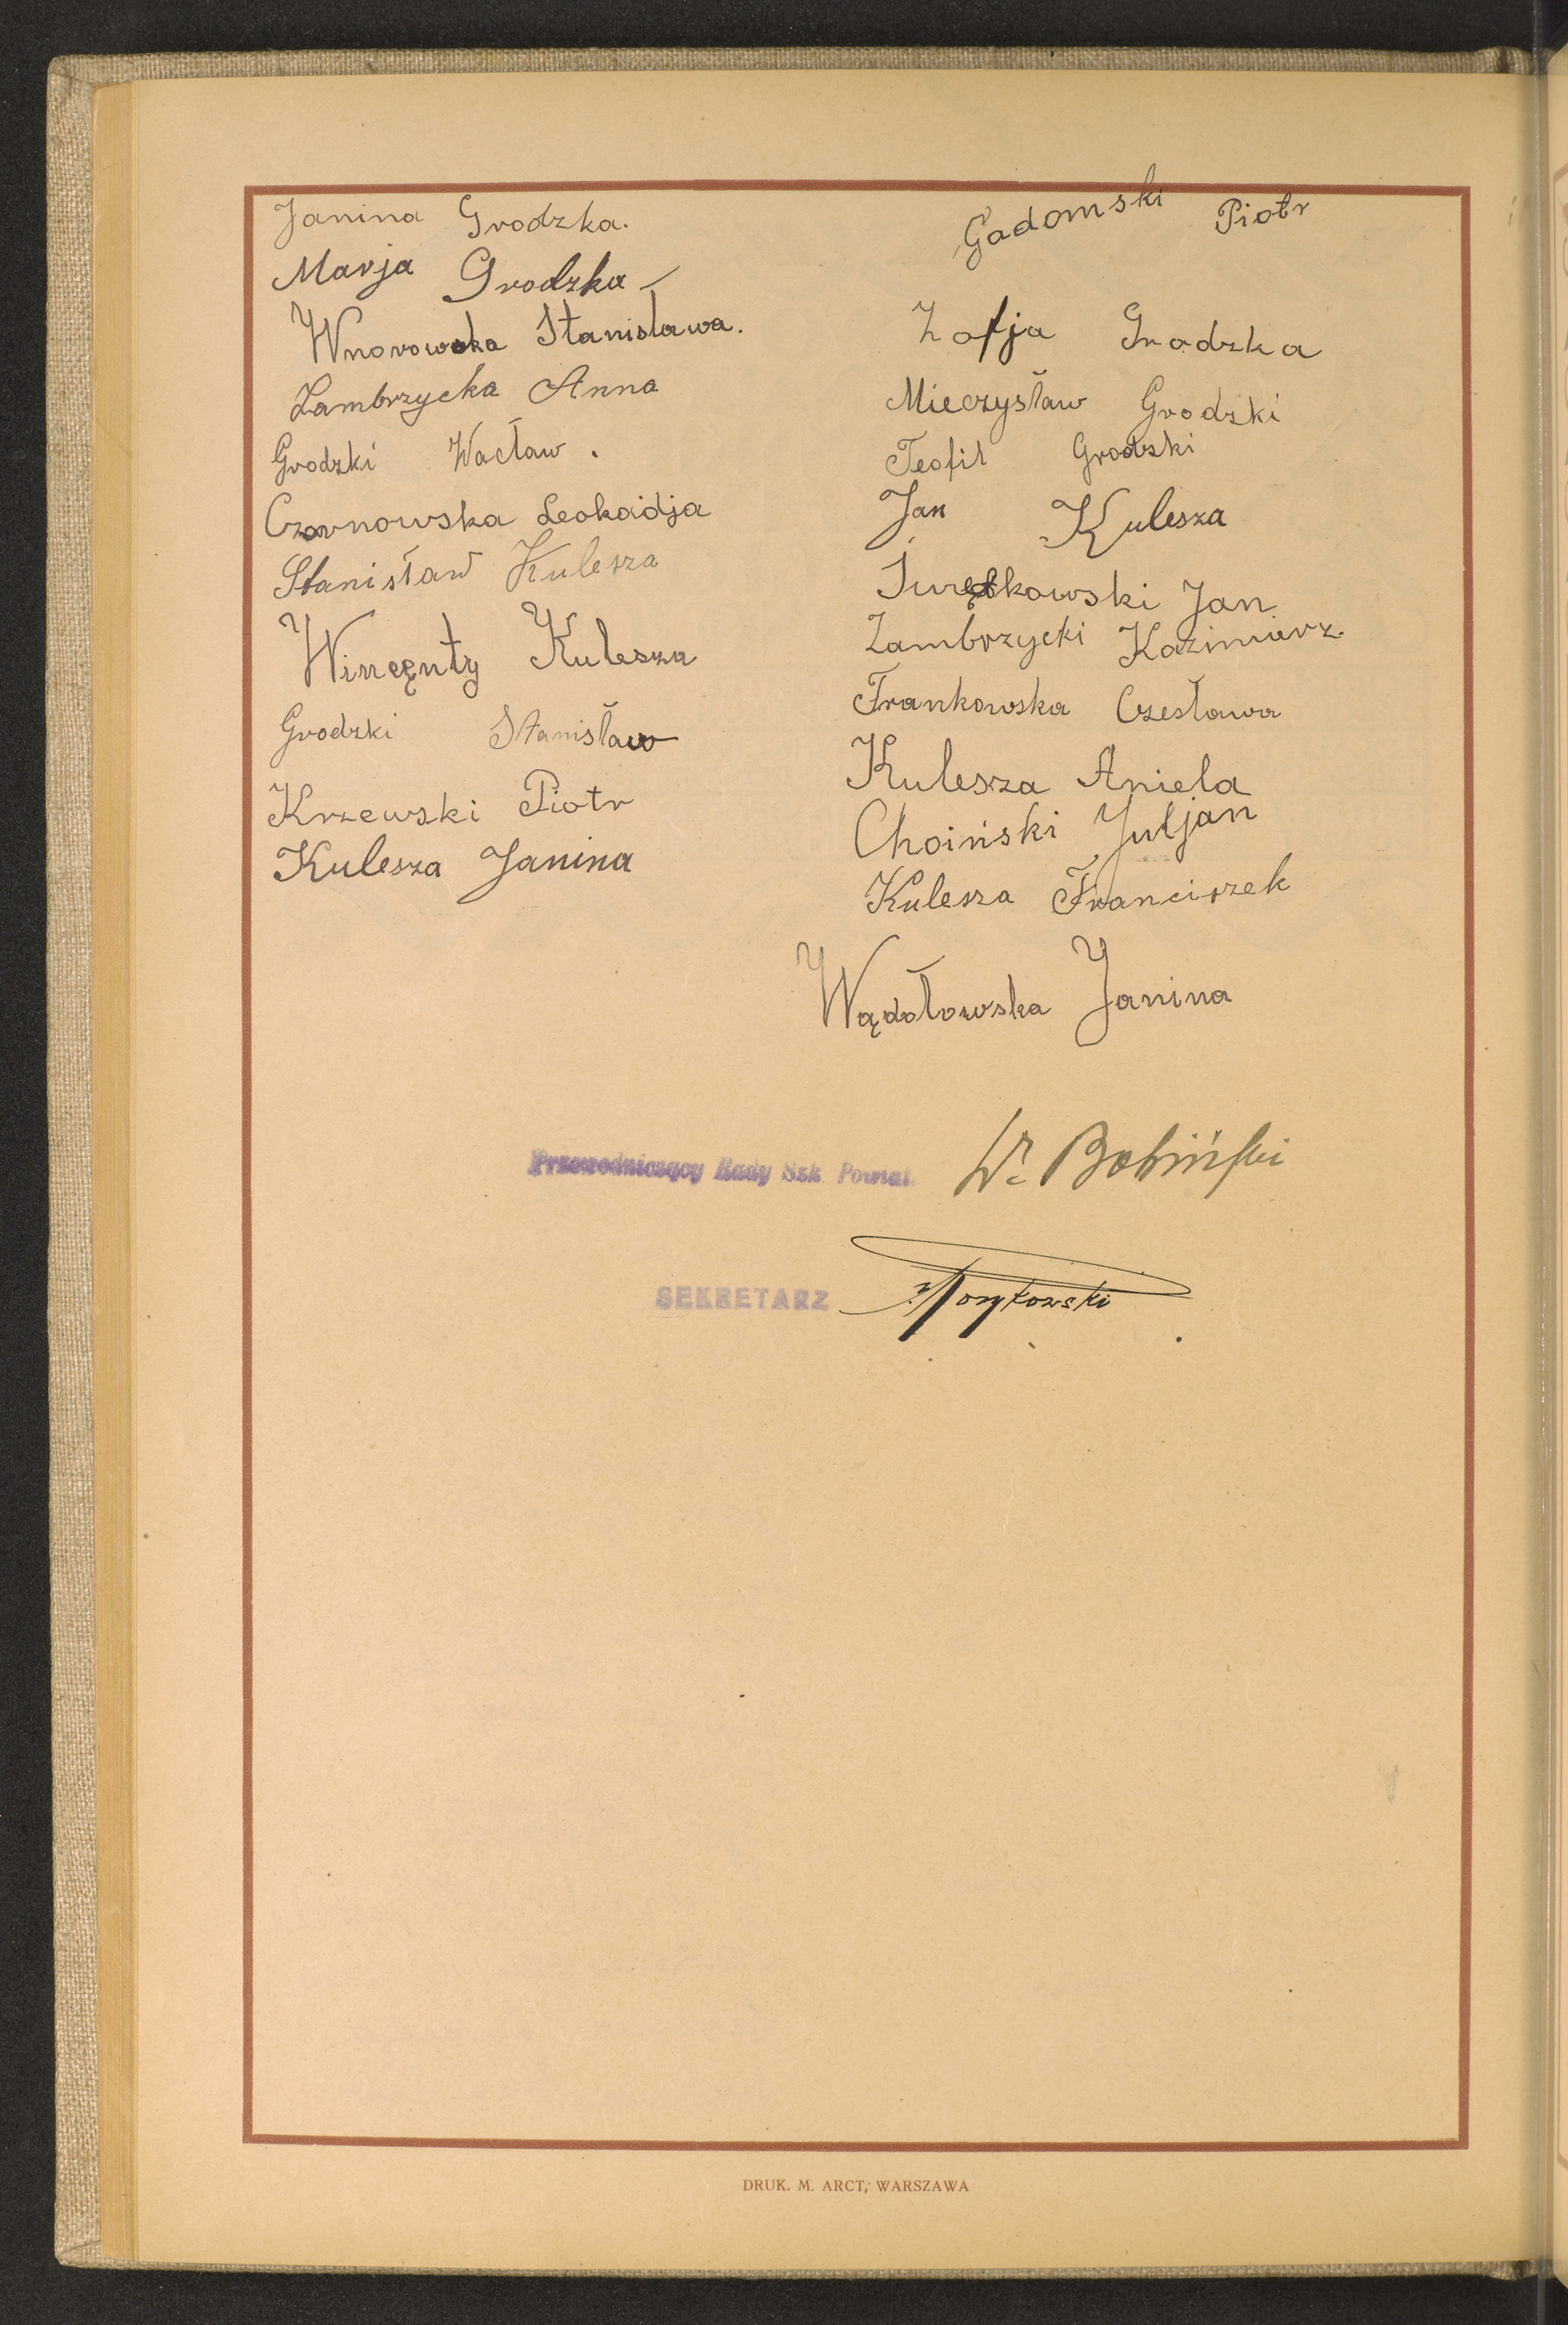 Janina Grodzka.
Marja Grodzka
Wnorowska Stanisława.
Zambrzycka Anna
Grodzki Wacław.
Czarnowska Leokadja
Stanisław Kulesza
Wincęnty Kulesza
Grodzki Stanisław
Krzewski Piotr
Kulesza Janina
Gadomski Piotr
Zofja Grodzka
Mieczysław Grodzki
Teofil Grodzki
Jan Kulesza
Jan
Zambrzycki Kazimierz.
Frankowska Czesława
Kulesza Aniela
Choiński Juljan
Kulesza Franciszek
Wądołowska Janina
Przewodniczący Rady Szk. Powiat. Bobiński
SEKRETARZ
DRUK. M. ARCT, WARSZAWA